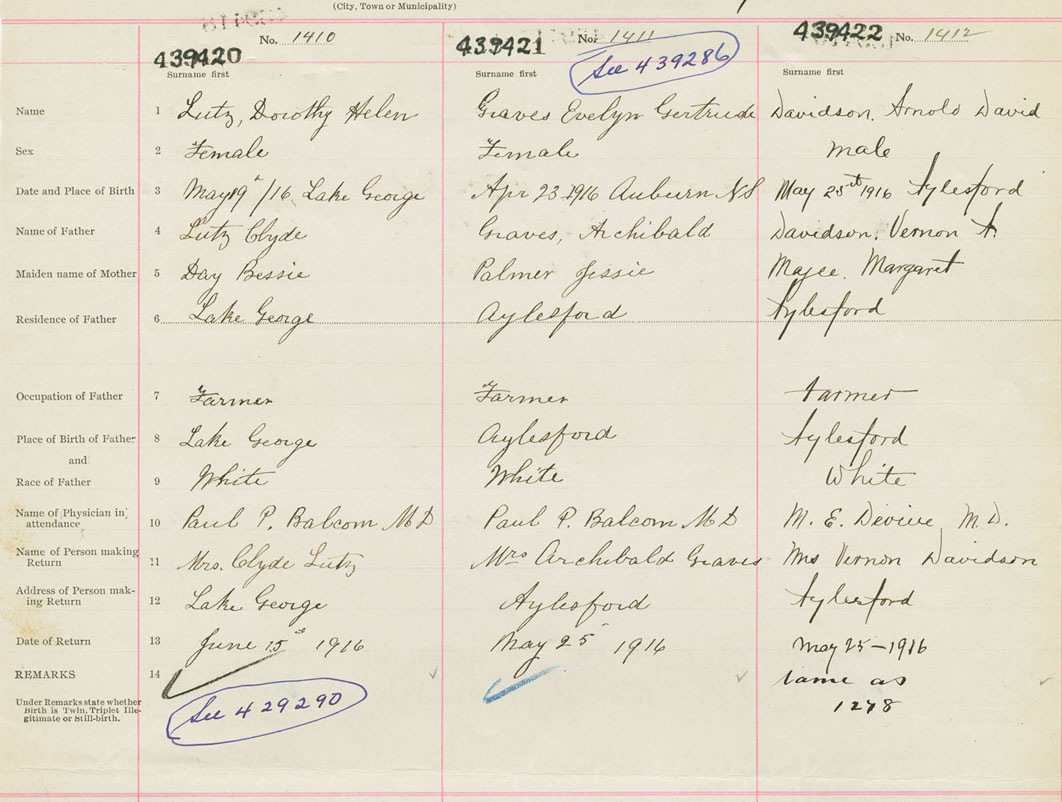 (City, Town or Municipality)
No. 1410
439420
Surname first
No. 1411
439421
Surname first
See 439286
439422 No. 1412
Surname first
Name 1 Lutz, Dorothy Helen Graves Evelyn Gertrude Davidson, Arnold David
Sex 2 Female Female male
Date and Place of Birth 3 May 19th/16 Lake George Apr 23 1916 Auburn NS May 25th 1916 Aylesford
Name of Father 4 Lutz Clyde Graves, Archibald Davidson, Vernon A.
Maiden name of Mother 5 Day Bessie Palmer Jessie Magee. Margaret
Residence of Father 6 Lake George Aylesford Aylesford
Occupation of Father 7 Farmer Farmer farmer
Place of Birth of Father 8 Lake George Aylesford Aylesford
and
Race of Father 9 White White White
Name of Physician in attendance 10 Paul P. Balcom MD Paul P. Balcom MD M. E. M.D.
Name of Person making Return 11 Mrs. Clyde Lutz Mrs Archibald Graves Mrs Vernon Davidson
Address of Person making Return 12 Lake George Aylesford Aylesford
Date of Return 13 June 15th 1916 May 25th 1916 May 25-1916
REMARKS 14 same as
1278
Under Remarks state whether
Birth is Twin, Triplet Ille-
gitimate or Still-birth.
See 429290